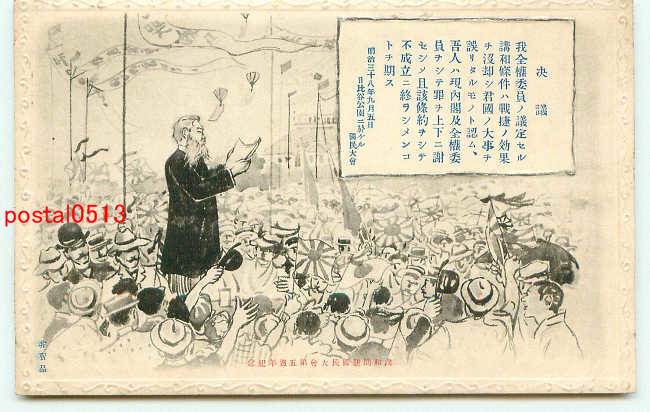 決議
我全權委員ノ議定セル
講和條件ハ戰捷ノ効果
ヲ沒却シ君國ノ大事ヲ
誤リタルモノト認ム、
吾人ハ現內閣及全權委
員ヲシテ罪ヲ上下ニ謝
セシメ且該條約ヲシテ
不成立ニ終ラシメンコ
トヲ期ス
明治三十八年九月五日
日比谷公園ニ於ケル
國民大會
postal0513
講和問題國民大會第五週年紀念
非賣品